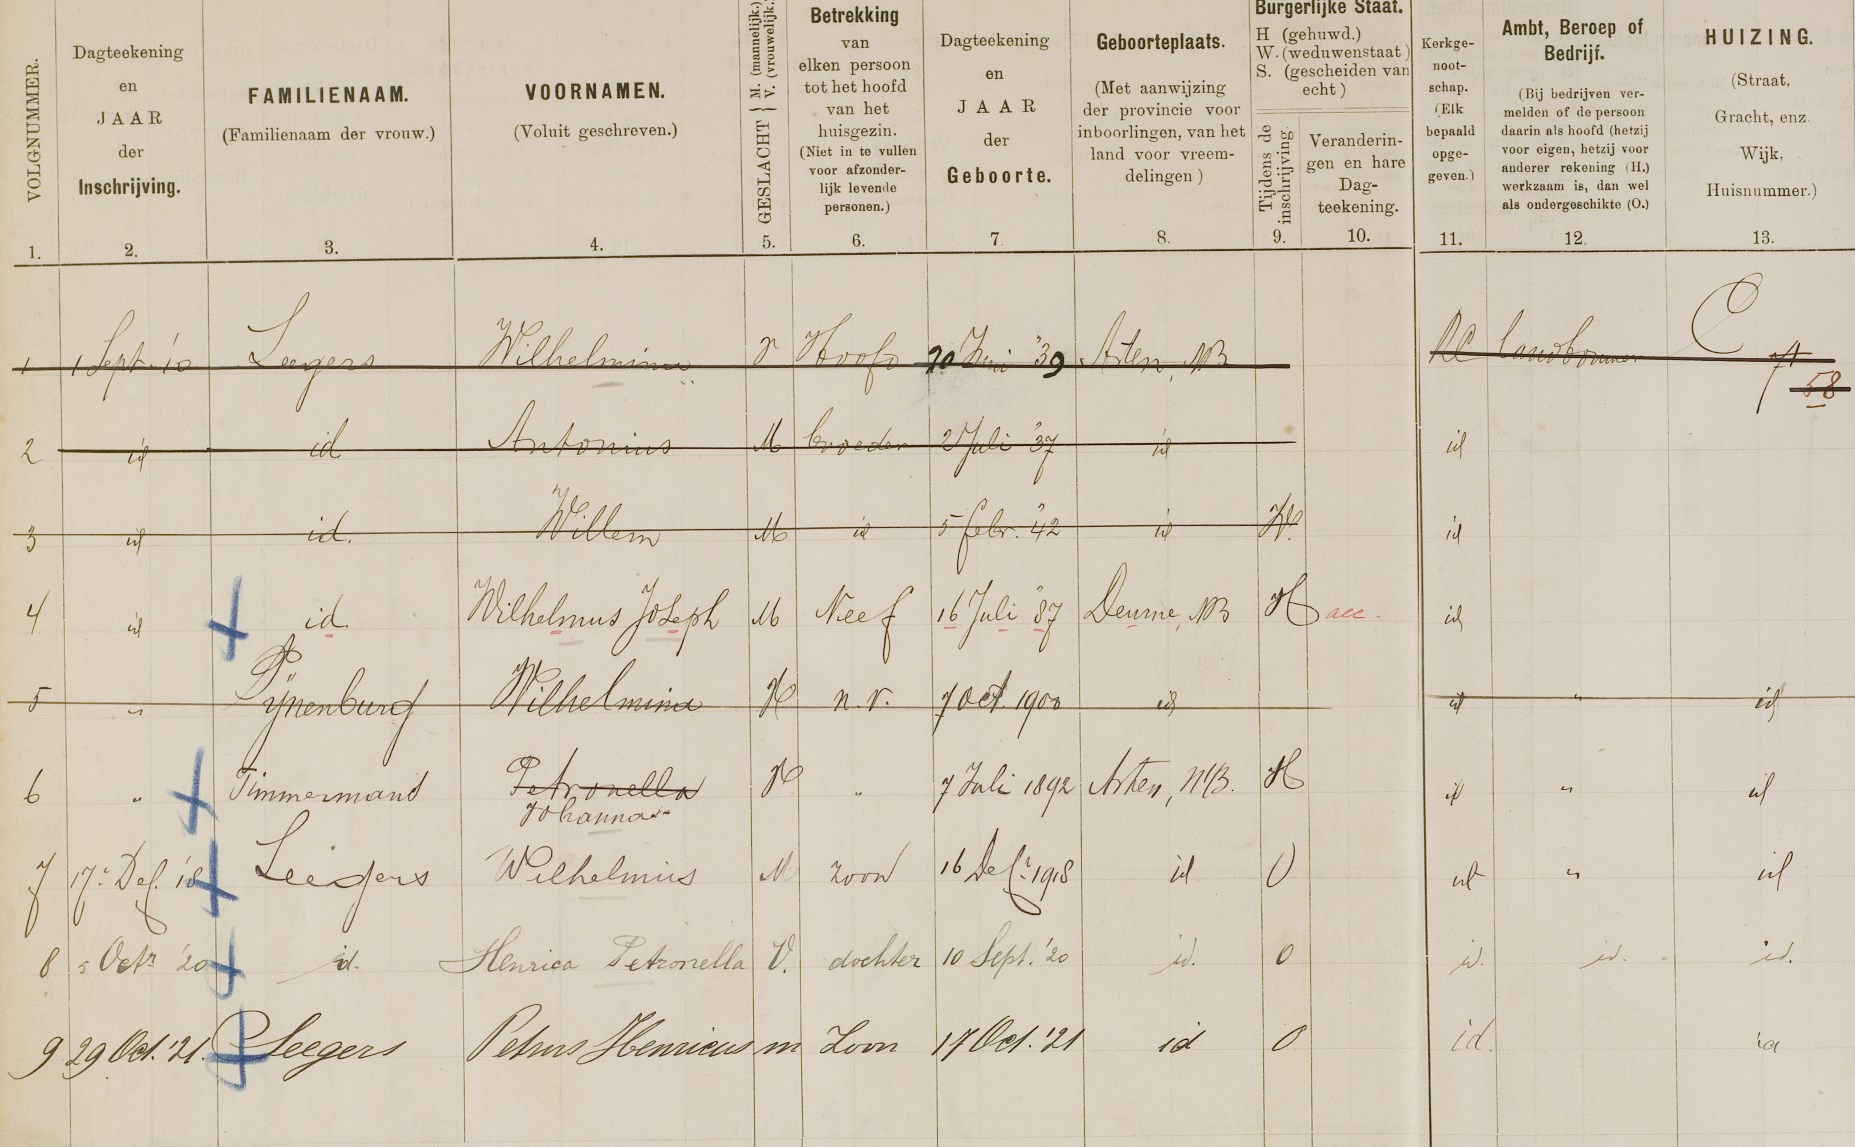 VOLGNUMMER.
1.
Dagteekening
en
JAAR
der
Inschrijving.
2.
FAMILIENAAM.
(Familienaam der vrouw.)
3.
VOORNAMEN.
(Voluit geschreven.)
4.
GESLACHT } M. (mannelijk.) V. (vrouwelijk.)
5.
Betrekking
van
elken persoon
tot het hoofd
van het
huisgezin.
(Niet in te vullen
voor afzonder-
lijk levende
personen.)
6.
Dagteekening
en
JAAR
der
Geboorte.
7.
Geboorteplaats.
(Met aanwijzing
der provincie voor
inboorlingen, van het
land voor vreem-
delingen)
8.
Burgerlijke Staat.
H (gehuwd.)
W. (weduwenstaat)
S. (gescheiden van
echt)
Tijdens de
inschrijving.
9.
Veranderin-
gen en hare
Dag-
teekening.
10.
Kerkge-
noot-
schap.
(Elk
bepaald
opge-
geven.)
11.
Ambt, Beroep of
Bedrijf.
(Bij bedrijven ver-
melden of de persoon
daarin als hoofd (hetzij
voor eigen, hetzij voor
anderer rekening (H.)
werkzaam is, dan wel
als ondergeschikte (O.)
12.
HUIZING.
(Straat,
Gracht, enz.
Wijk,
Huisnummer.)
13.
1 1 Sept. '10 Leegers Wilhelmina V Hoofd 20 Juni '39 Asten, NB RC Landbouwer C 71
58
2 id id Antonius M broeder 2 Juli '37 id id
3 id id. Willem M id 5 febr. '42 id W. id
4 id id. Wilhelmus Joseph M Neef 16 Juli '87 Deurne, NB H acc. id
5 " Pijnenburg Wilhelmina V n.v. 7 Oct. 1900 id id " id
6 " Timmermans Petronella V " 7 Juli 1892 Asten, NB. H id " id
Johanna
7 17 Dec. '18 Leegers Wilhelmus M zoon 16 Decr 1918 id O id " id
8 5 Octr '20 id. Henrica Petronella V. dochter 10 Sept. '20 id. O id. id. id.
9 29 Oct. '21. Leegers Petrus Henricus m Zoon 17 Oct. '21 id O id. id